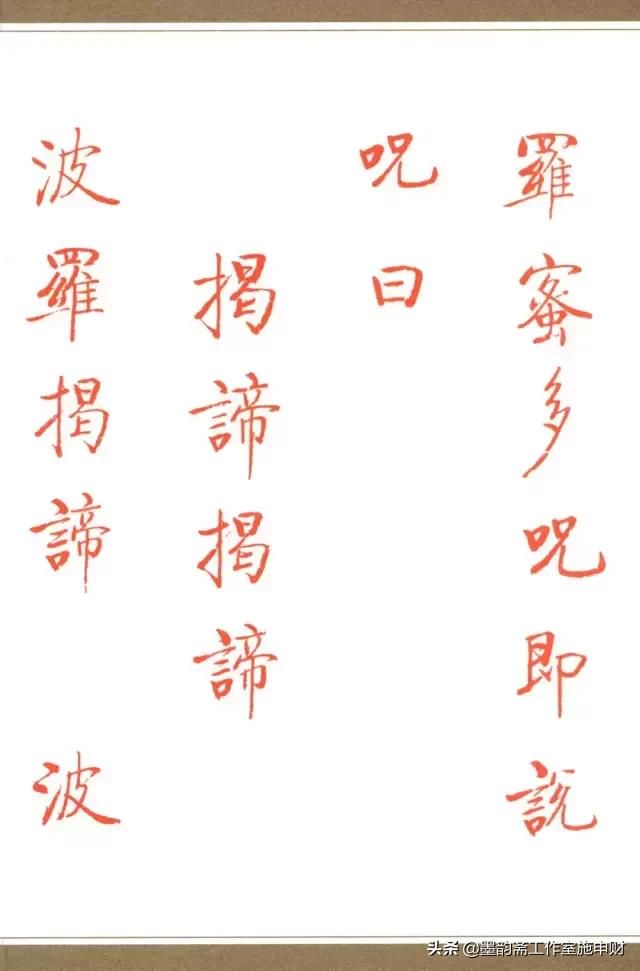 羅蜜多呪即説
呪曰
揭諦揭諦
波羅揭諦 波
头条 @墨韵斋工作室施申财